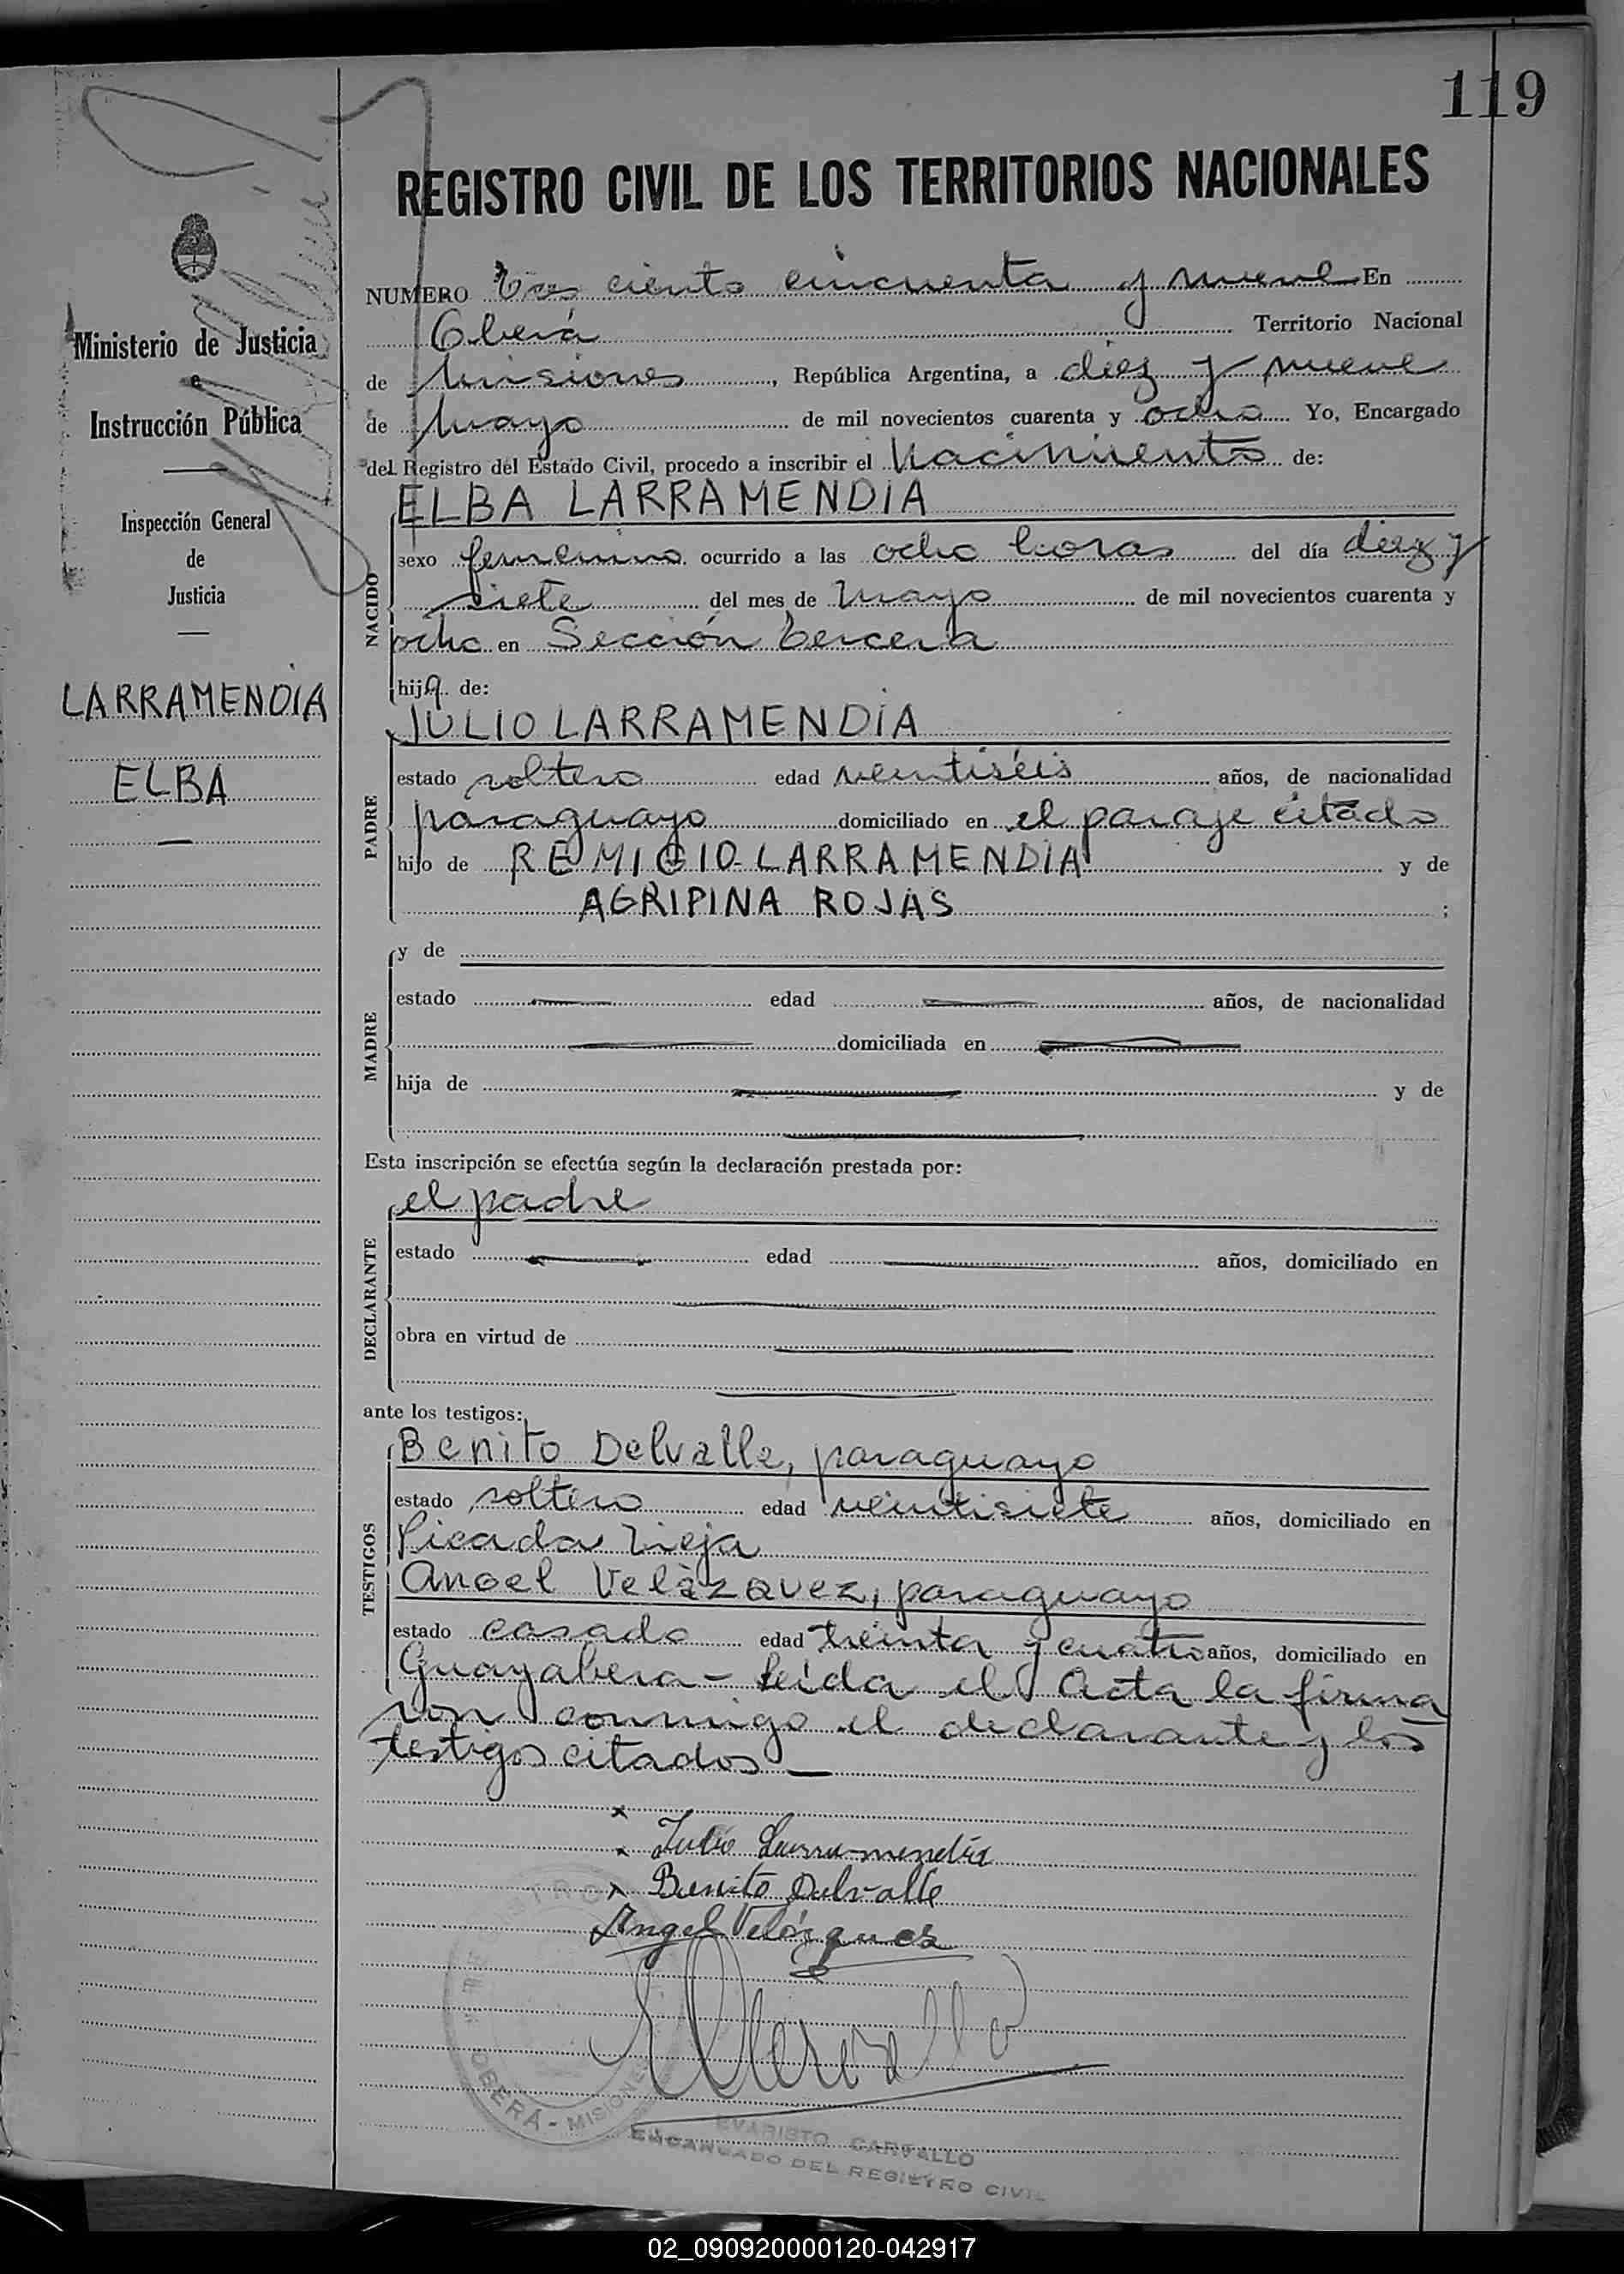 119
REGISTRO CIVIL DE LOS TERRITORIOS NACIONALES
NUMERO Tres ciento cincuenta y nueve En
Oberá Territorio Nacional
de Misiones, República Argentina, a diez y nueve
de Mayo de mil novecientos cuarenta y ocho Yo, Encargado
del Registro del Estado Civil, procedo a inscribir el Nacimiento de:
Ministerio de Justicia
e
Instrucción Pública
Inspección General
de
Justicia
LARRAMENDIA
ELBA
NACIDO
ELBA LARRAMENDIA
sexo femenino ocurrido a las ocho horas del día diez y
siete del mes de Mayo de mil novecientos cuarenta y
ocho en Sección Tercera
hija de:
PADRE
JULIO LARRAMENDIA
estado soltero edad veintiséis años, de nacionalidad
paraguayo domiciliado en el paraje citado
hijo de REMIGIO LARRAMENDIA y de
AGRIPINA ROJAS ;
MADRE
y de
estado edad años, de nacionalidad
domiciliada en
hija de y de
Esta inscripción se efectúa según la declaración prestada por:
DECLARANTE
el padre
estado edad años, domiciliado en
obra en virtud de
ante los testigos:
TESTIGOS
Benito Delvalle, paraguayo
estado soltero edad veintisiete años, domiciliado en
Picada Vieja
Angel Velázquez, paraguayo
estado casado edad treinta y cuatro años, domiciliado en
Guayabera - Leida el Acta la firma
ron conmigo el declarante y los
testigos citados
Julio Larramendia
Benito Delvalle
Angel Velázquez
OBERÁ - MISIONES
EVARISTO CARVALLO
ENCARGADO DEL REGISTRO CIVIL
02_090920000120-042917